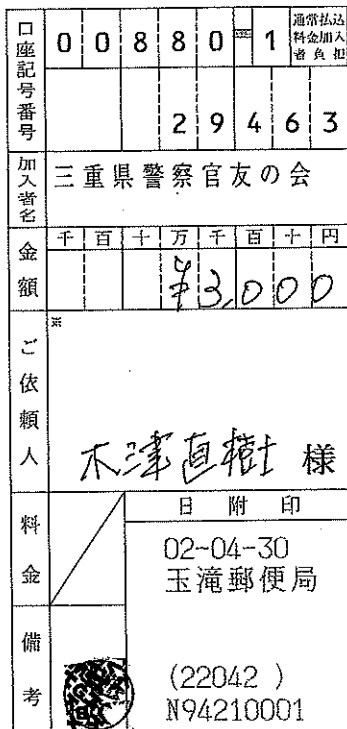 口座記号番号
00880-1
通常払込料金加入者負担
29463
加入者名
三重県警察官友の会
金額
千百十万千百十円
¥3,000
※
ご依頼人
木津直樹 様
料金
日附印
02-04-30
玉滝郵便局
備考
(22042 )
N94210001